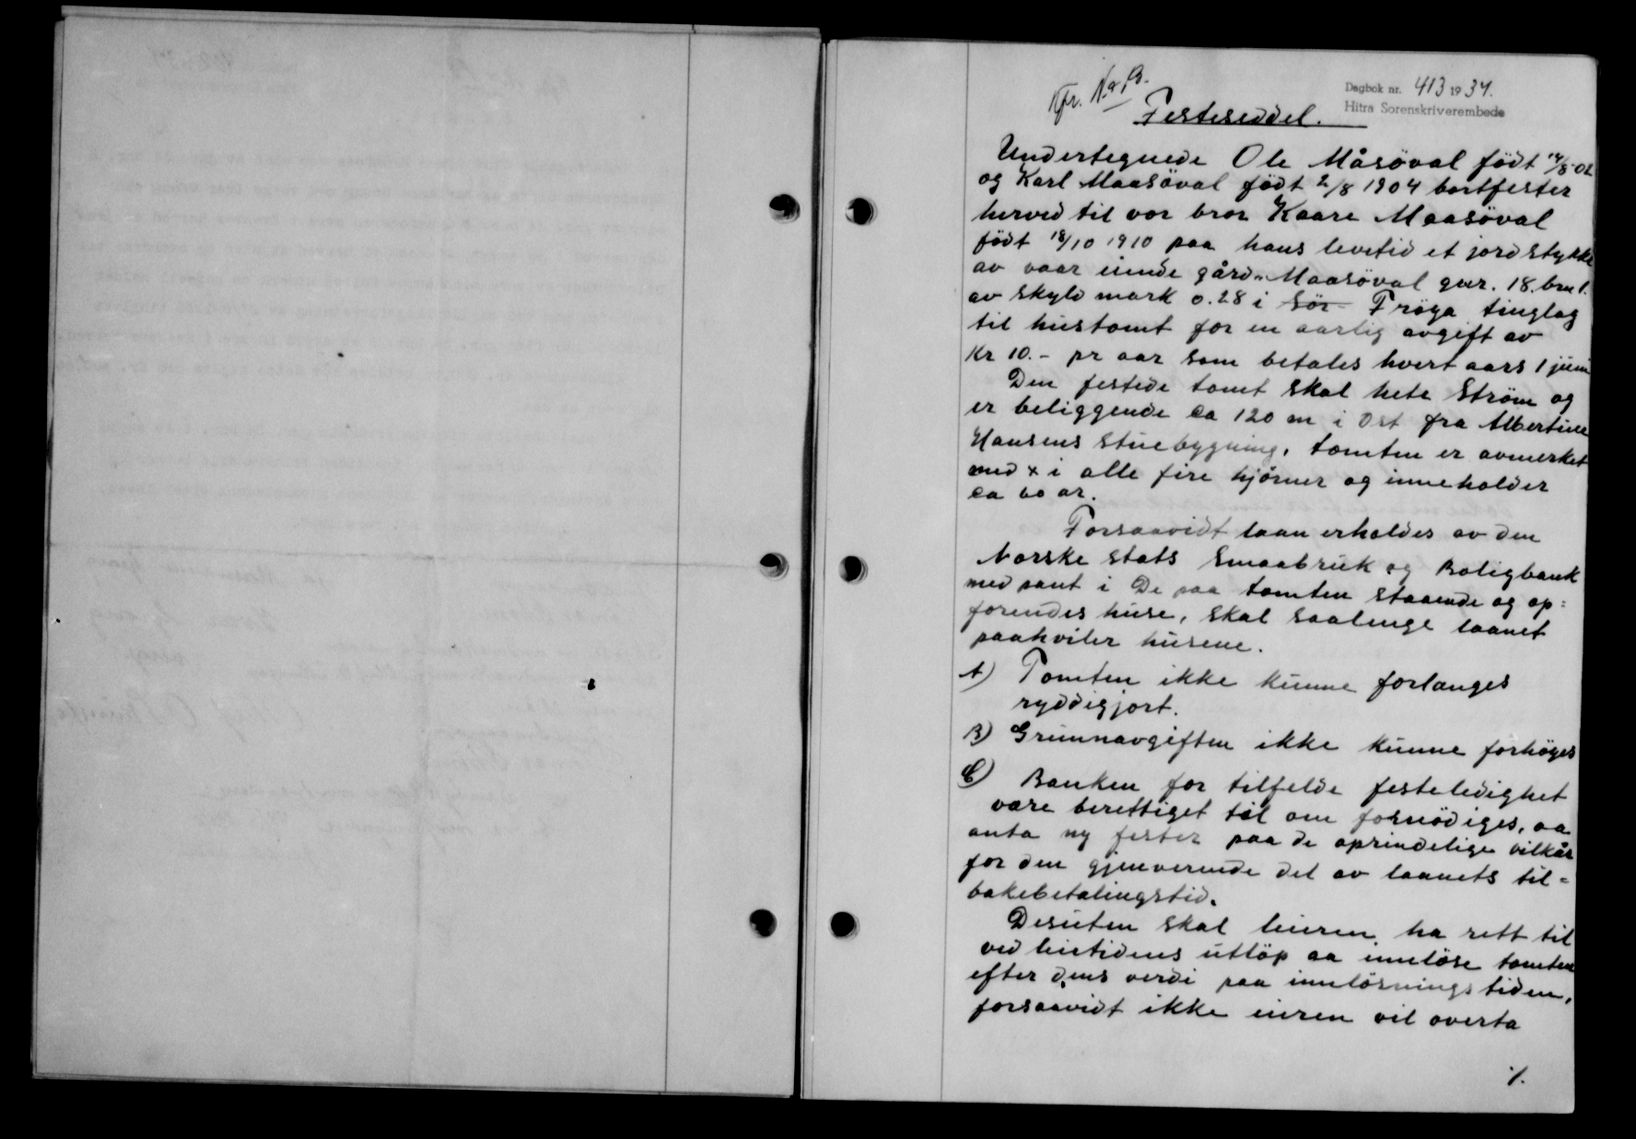 Dagbok nr. 413 1934.
Hitra Sorenskriverembede
Kfr. N.
Festeseddel.
Undertegnede Ole Måsöval født 14/8-02
og Karl Maasöval født 2/8 1904 bortfester
herved til vor bror Kaare Maasöval
födt 18/10 1910 paa hans levetid et jordstykke
av vaar eiende gård Maasöval gnr. 18. bnr 1.
av skyld mark 0.28 i Sör- Fröya tinglag
til hustomt for en aarlig avgift av
Kr 10.- pr aar som betales hvert aars 1 juni
Den festede tomt skal hete Ström og
er beliggende ca 120 m i Ost fra Albertine
Hansens stuebygning, tomten er avmerket
med x i alle fire hjörner og inneholder
ca ar.
Forsaavidt laan erholdes av den
Norske stats Smaabruk og Boligbank
med pant i De paa tomten staaende og op=
förendes huse, skal saalenge laanet
paahviler husene.
A) Tomten ikke kunne forlanges
ryddigjort.
B) Grunnavgiften ikke kunne forhöges
C) Banken for tilfelde festeledighet
være berettiget til om fornödiges, aa
anta ny fester paa de oprindelige vilkår
for den gjenverende del av laanets til=
bakebetalingstid.
Desuten skal leieren ha rett til
ved leietidens utlöp aa innlöse tomten
efter dens verdi paa innlösningstiden,
forsaavidt ikke eieren vil overta
·/.